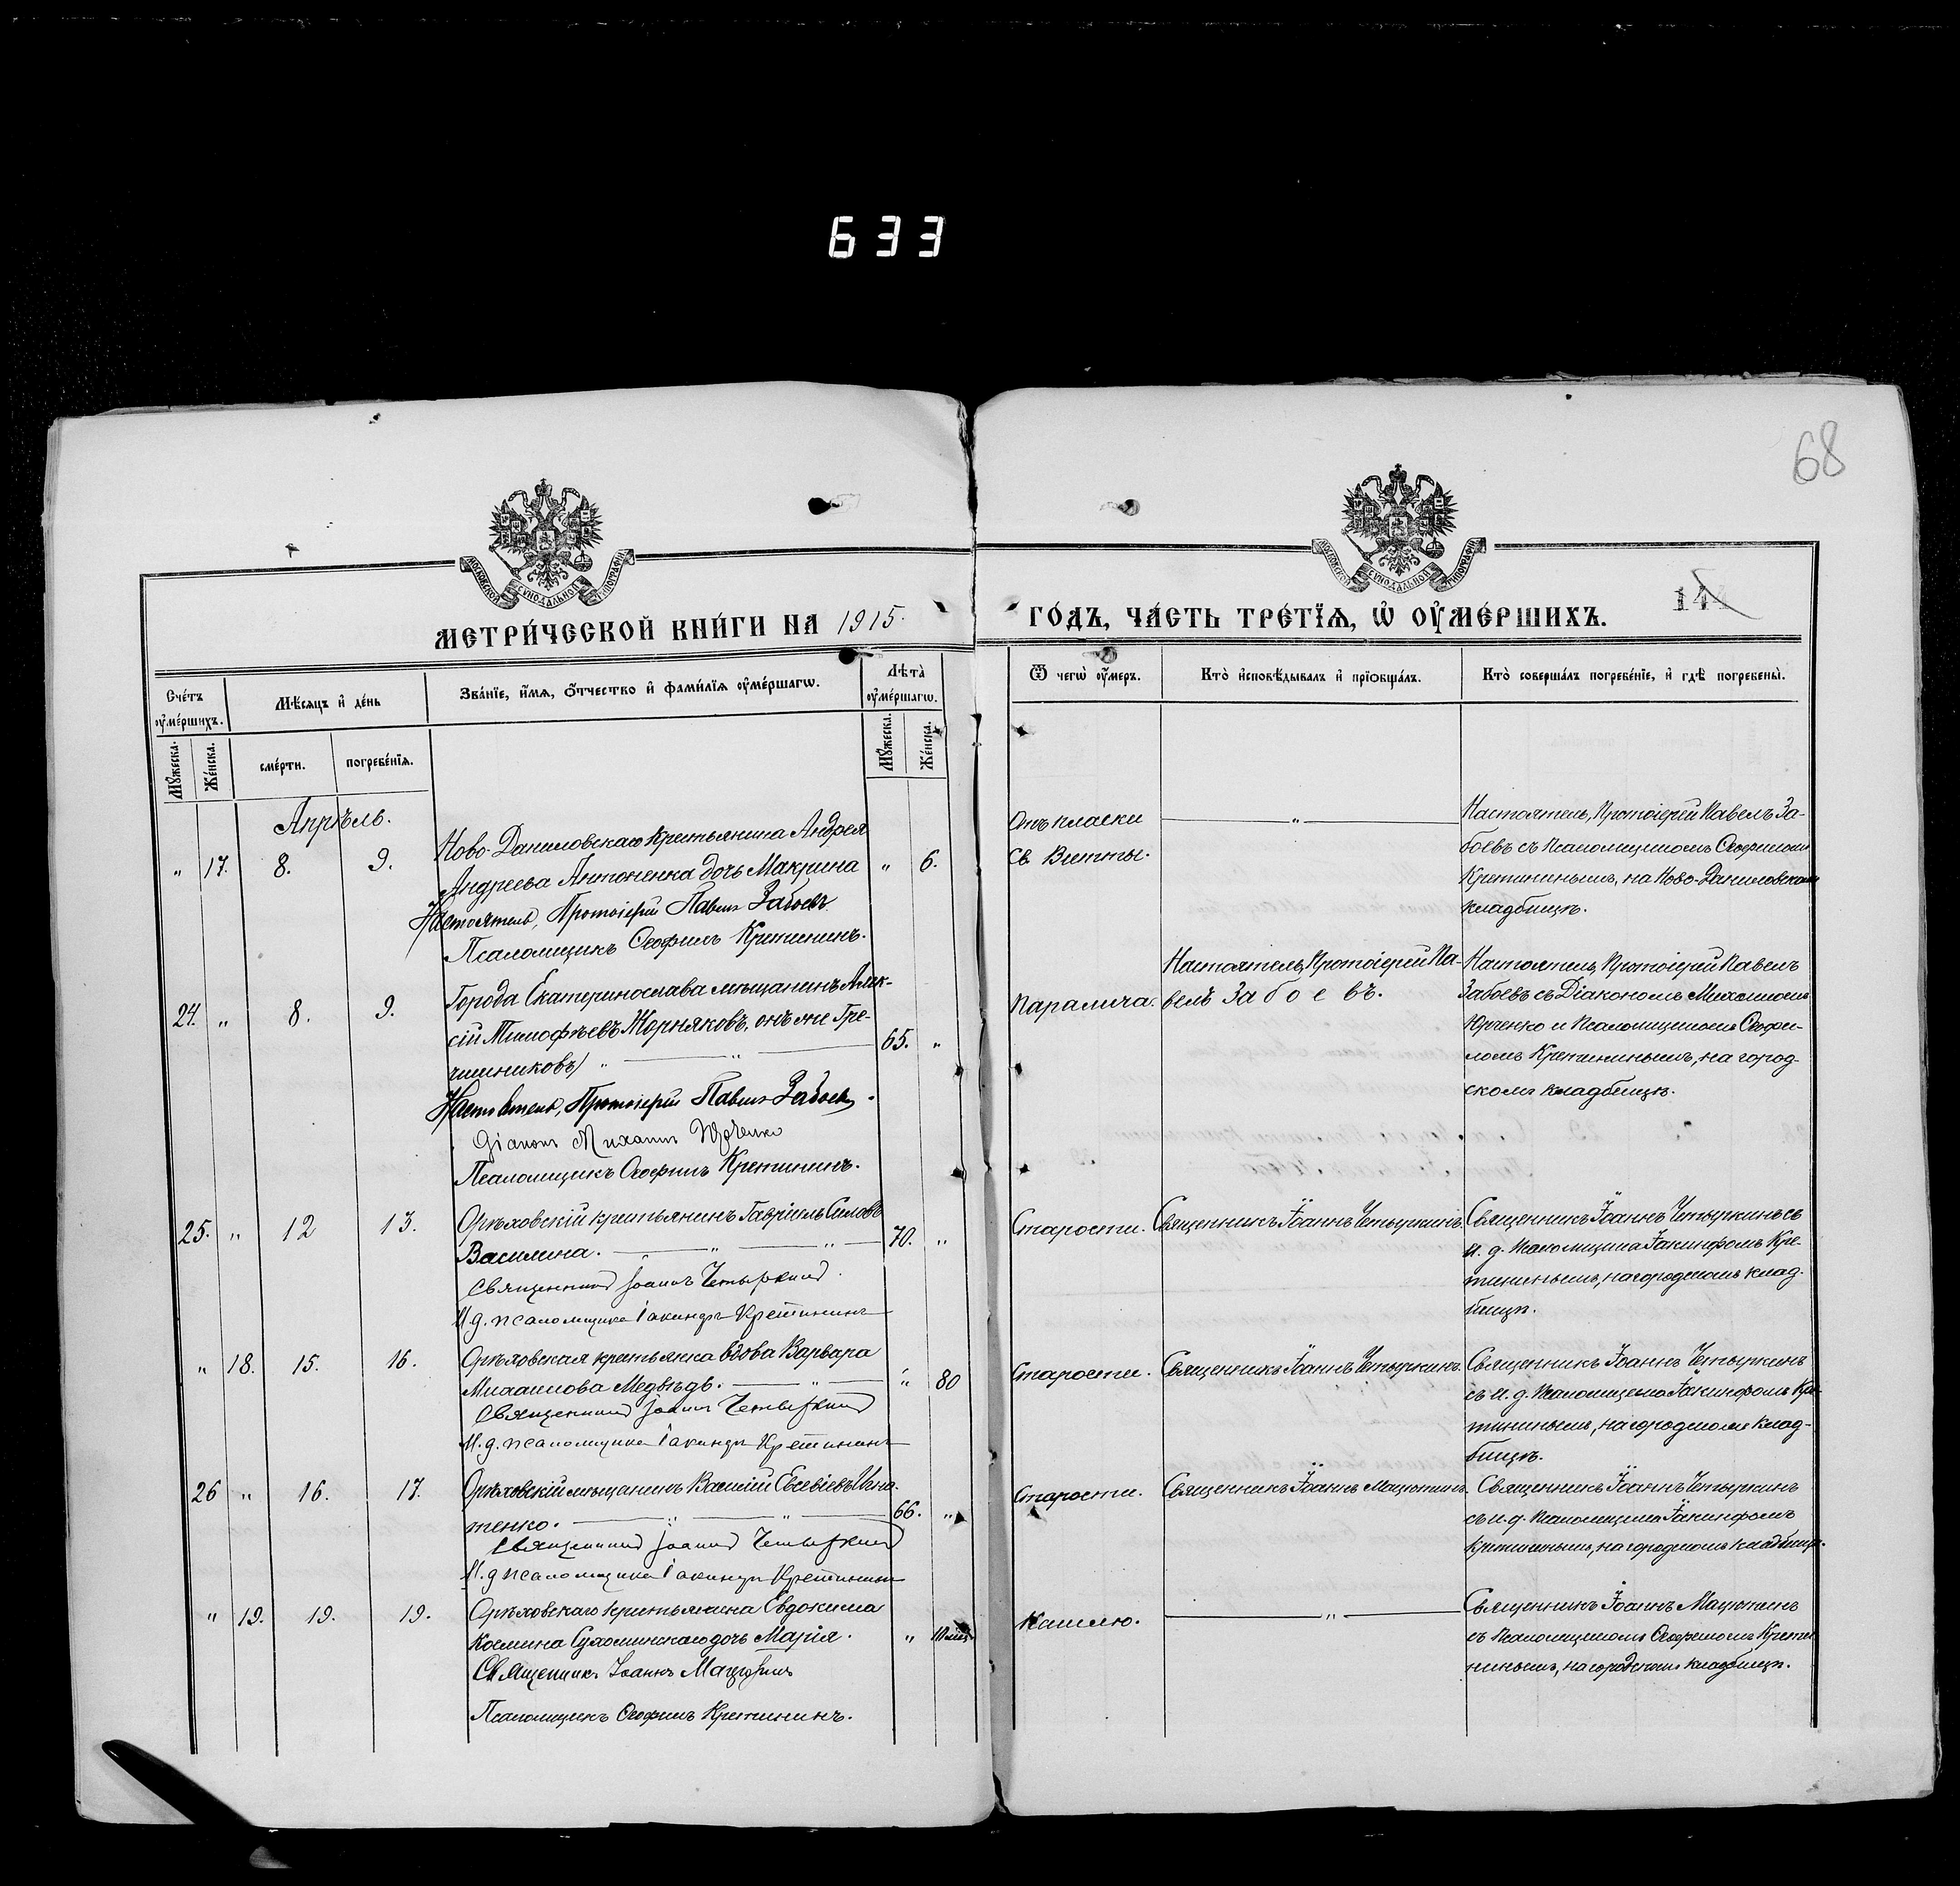 633
68
МОСКОВСКОЙ СУНОДАЛЬНОЙ ТИПОГРАФІИ
МОСКОВСКОЙ СУНОДАЛЬНОЙ ТИПОГРАФІИ
МЕТРИ́ЧЕСКОЙ КНИ́ГИ НА 1915.
ГО́ДЪ, ЧА́СТЬ ТРЕ́ТЇѦ, Ѡ҆ ОУ҆МЕ́РШИХЪ.
14
Сче́тъ оу҆ме́ршихъ.
Мѣ́сѧцъ и҆ де́нь
Зва́нїе, и҆́мѧ, ѻ҆́тчество и҆ фами́лїѧ оу҆ме́ршагѡ.
Лѣ̀та̀ оу҆ме́ршагѡ.
Ѿ чегѡ̀ оу҆́меръ.
Кто̀ и҆сповѣ́дывалъ и҆ прїѻбща́лъ.
Кто̀ соверша́лъ погребе́нїе, и҆ гдѣ̀ погребены̀.
Мꙋ́жеска.
Же́нска.
сме́рти.
погребе́нїѧ.
Мꙋ́жеска.
Же́нска.
Апрѣль.
" 17. 8. 9.
Ново-Даниловскаго крестьянина Андрея
Андреева Антоненка дочь Макрина " 6.
Настоятель, Протоіерей Павелъ Забоевъ
Псаломщикъ Ѳеофилъ Кретининъ.
Отъ пляски
св. Витты.
"
Настоятель, Протоіерей Павелъ За-
боевъ съ Псаломщикомъ Ѳеофиломъ
Кретининымъ, на Ново-Даниловскомъ
кладбищѣ.
24. " 8. 9.
Города Екатеринослава мѣщанинъ Алек-
сій Тимофѣевъ Жорняковъ, онъ же Гре-
чишниковъ) " " 65. "
Настоятель, Протоіерей Павелъ Забоевъ.
Діаконъ Михаилъ Юрченко
Псаломщикъ Ѳеофилъ Кретининъ.
Паралича.
Настоятель, Протоіерей Па-
велъ Забоевъ.
Настоятель, Протоіерей Павелъ
Забоевъ съ Діакономъ Михаиломъ
Юрченко и Псаломщикомъ Ѳеофи-
ломъ Кретининымъ, на город-
скомъ кладбищѣ.
25. " 12 13.
Орѣховскій крестьянинъ Гавріилъ Силовъ
Василина. " " 70. "
Священникъ Іоаннъ Четыркинъ.
И. д. псаломщика Іакинфъ Кретининъ
Старости.
Священникъ Іоаннъ Четыркинъ.
Священникъ Іоаннъ Четыркинъ съ
и. д. Псаломщика Іакинфомъ Кре-
тининымъ, на городскомъ клад-
бищѣ.
" 18. 15. 16.
Орѣховская крестьянка вдова Варвара
Михаилова Медвѣдь. " " 80
Священникъ Іоаннъ Четыркинъ
И. д. псаломщика Іакинфъ Кретининъ
Старости.
Священникъ Іоаннъ Четыркинъ.
Священникъ Іоаннъ Четыркинъ
съ и. д. Псаломщика Іакинфомъ Кре-
тининымъ, на городскомъ клад-
бищѣ.
26 " 16. 17.
Орѣховскій мѣщанинъ Василій Евсевіевъ Игна-
тенко. " " 66. "
Священникъ Іоаннъ Четыркинъ
И. д. псаломщика Іакинфъ Кретининъ
Старости.
Священникъ Іоаннъ Мацютинъ.
Священникъ Іоаннъ Четыркинъ
съ и. д. Псаломщика Іакинфомъ
Кретининымъ, на городскомъ кладбищѣ.
" 19. 19. 19.
Орѣховскаго крестьянина Евдокима
Космина Сухоминскаго дочь Марія. " 10 мѣс.
Священникъ Іоаннъ Мацютинъ
Псаломщикъ Ѳеофилъ Кретининъ.
Кашлю.
"
Священникъ Іоаннъ Мацютинъ
съ Псаломщикомъ Ѳеофиломъ Крети-
нинымъ, на городскомъ кладбищѣ.